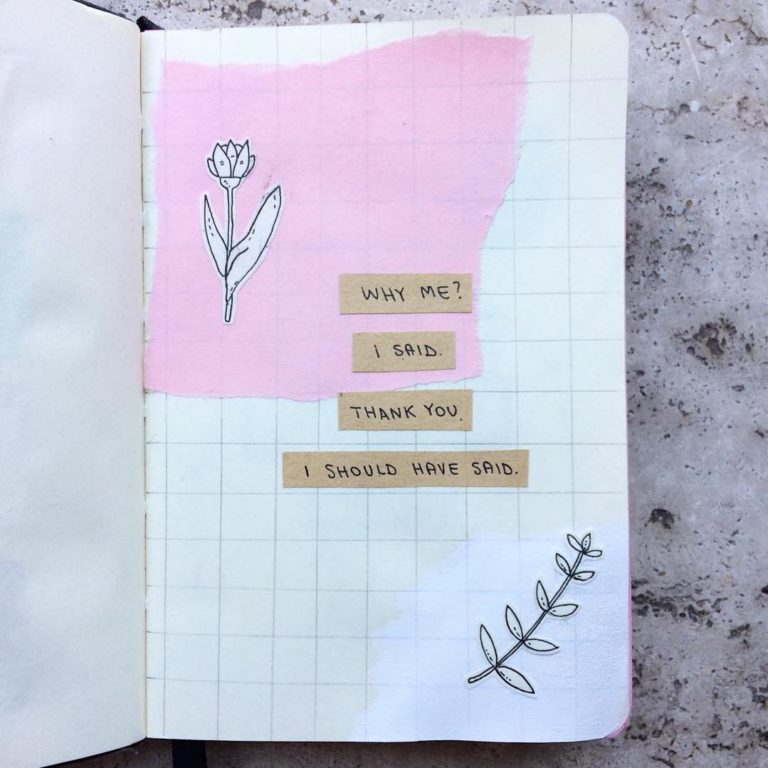 WHY ME?
I SAID.
THANK YOU.
I SHOULD HAVE SAID.